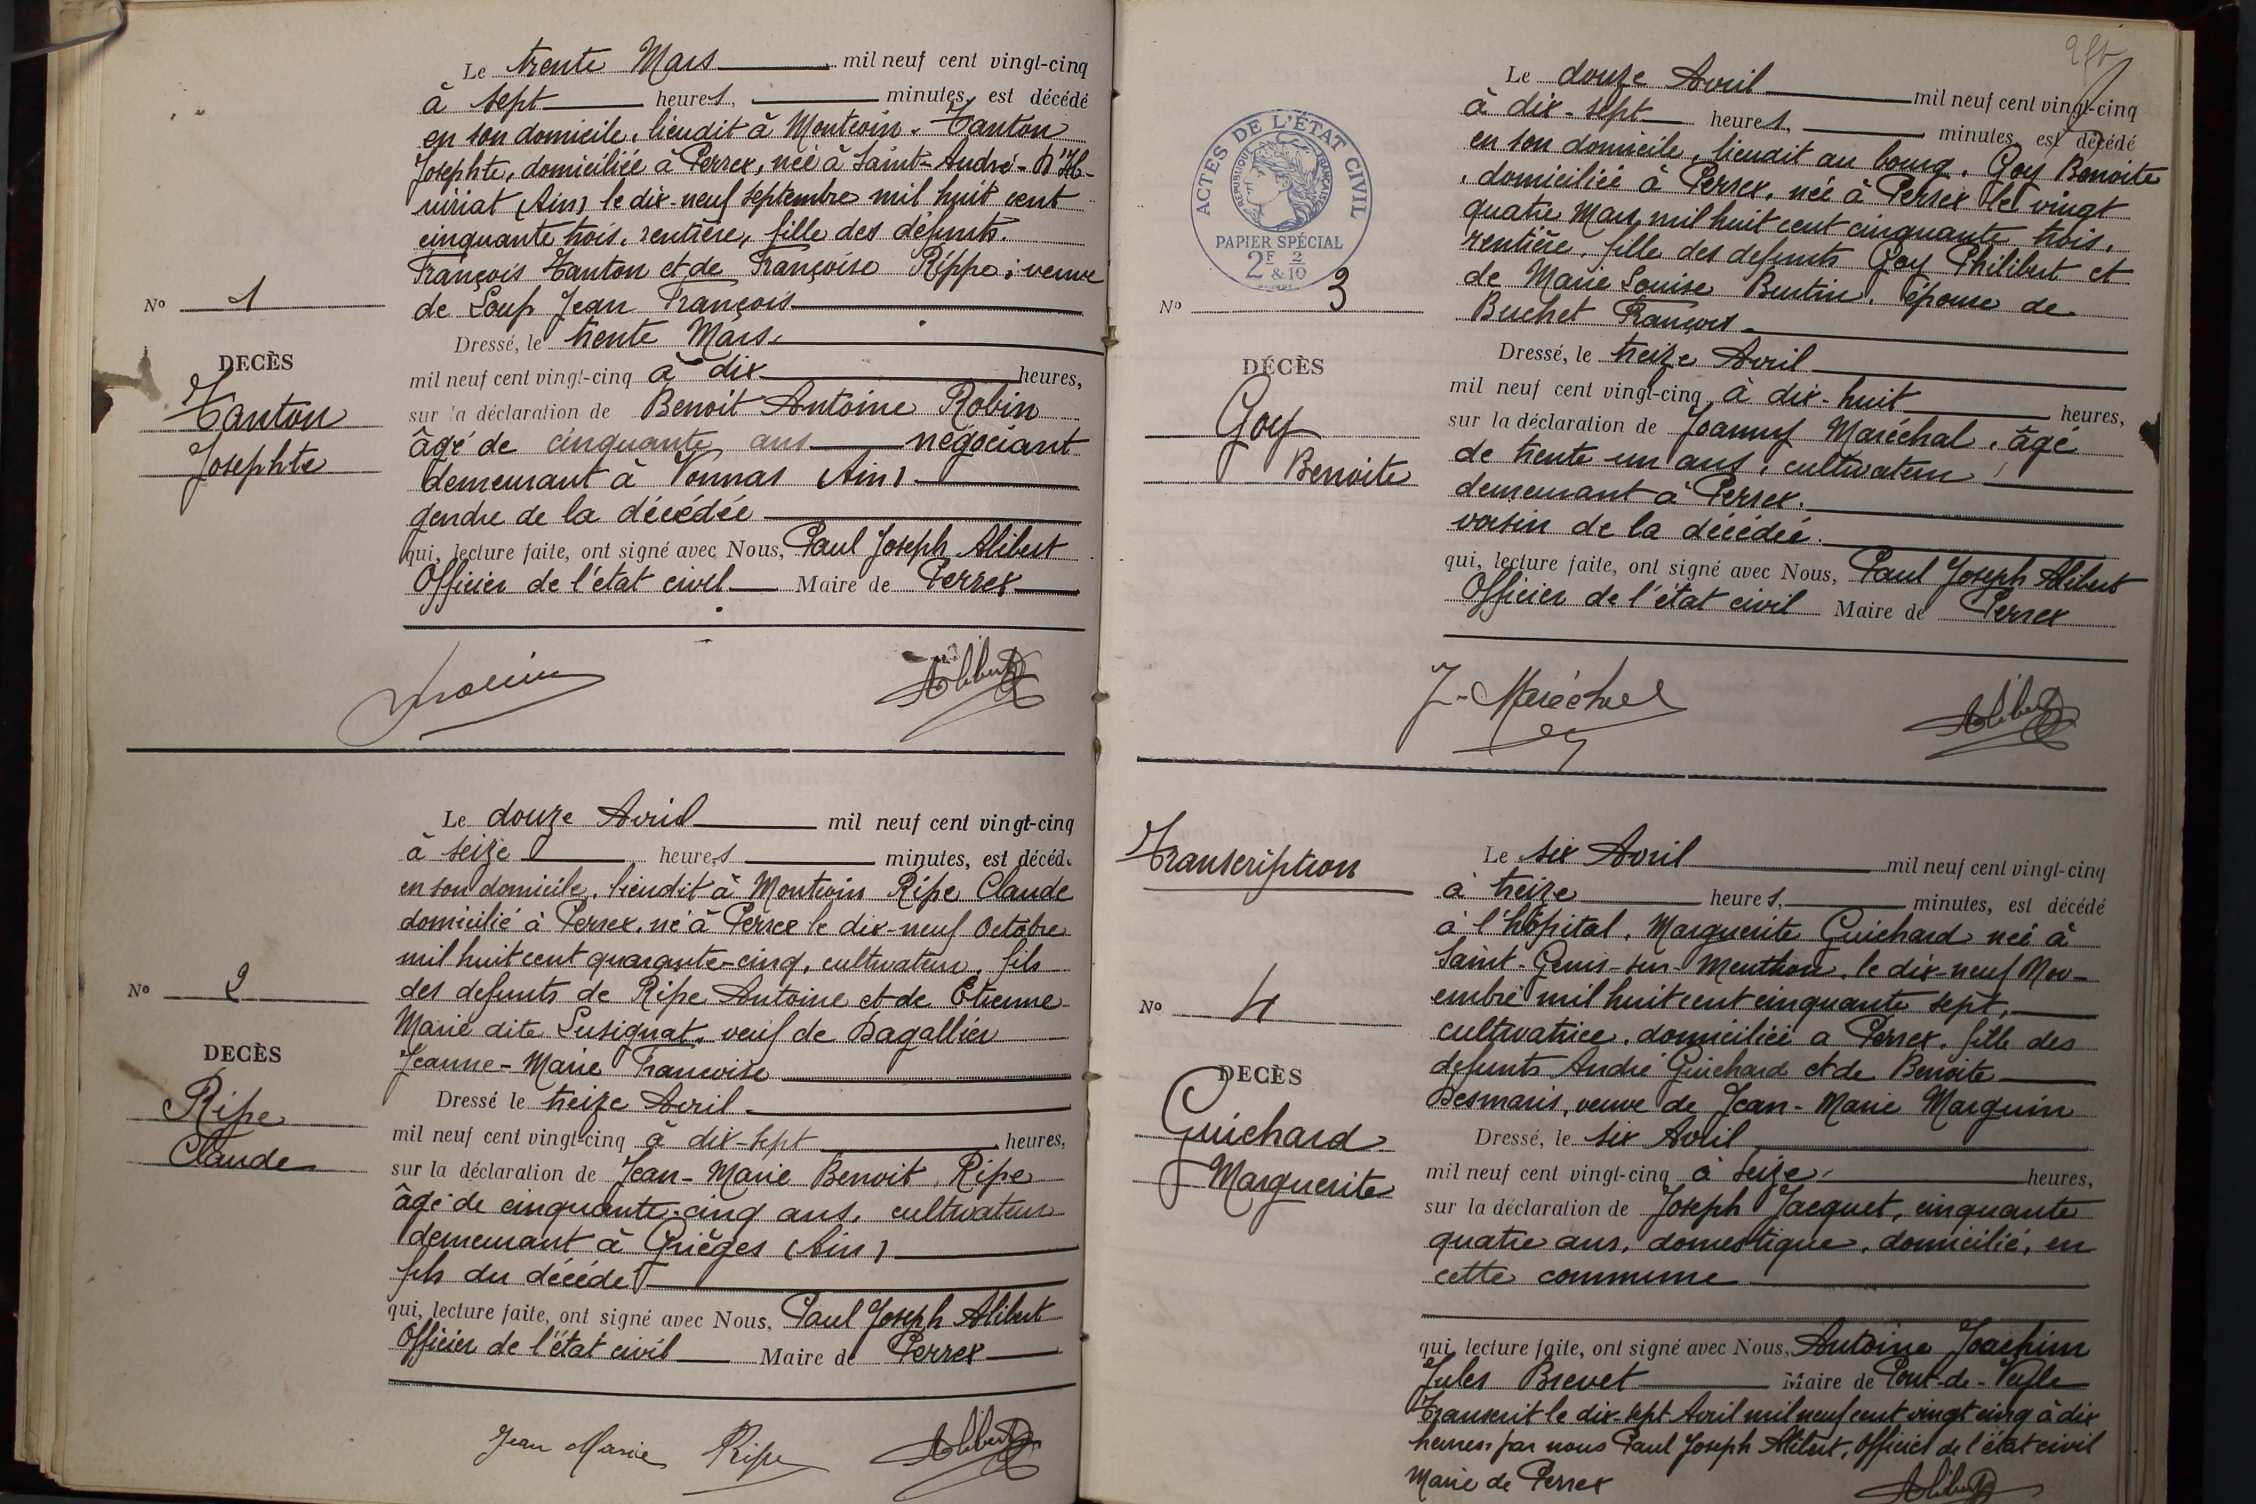 Le trente Mars mil neuf cent vingt-cinq
à sept heures, minutes, est décédé
en son domicile, lieudit à Montvoin. Tanton
Josephte, domiciliée à Perrex, née à Saint-André-d'Hu-
iriat (Ain) le dix-neuf septembre mil huit cent
cinquante trois, rentière, fille des défunts.
François Tanton et de Françoise Rippe; veuve
de Loup Jean François
Nº 1
Dressé, le trente Mars,
DECÈS
mil neuf cent vingt-cinq à dix heures,
Tanton
sur la déclaration de Benoit Antoine Robin
âgé de cinquante ans négociant
Josephte
demeurant à Vonnas (Ain)
gendre de la décédée
qui, lecture faite, ont signé avec Nous, Paul Joseph Alibert
Officier de l'état civil Maire de Perrex
Alibert
Le douze Avril mil neuf cent vingt-cinq
à seize heures minutes, est décéd.
en son domicile, lieudit à Montvoin Ripe Claude
domicilié à Perrex, né à Perrex le dix-neuf Octobre
mil huit cent quarante-cinq, cultivateur, fils
des defunts de Ripe Antoine et de Etienne
Nº 2
Marie dite Lusignat, veuf de Dagallier
DECÈS
Jeanne-Marie Francoise
Ripe
Dressé le treize Avril
mil neuf cent vingt-cinq à dix-sept heures,
Claude
sur la déclaration de Jean-Marie Benoit Ripe
âgé de cinquante-cinq ans, cultivateur
demeurant à Grièges (Ain)
fils du décédé
qui, lecture faite, ont signé avec Nous, Paul Joseph Alibert
Officier de l'état civil Maire de Perrex
Jean Marie Ripe Alibert
Le douze Avril mil neuf cent vingt-cinq
à dix-sept heures, minutes, est décédé
en son domicile, lieudit au bourg, Goy Benoite
, domiciliée à Perrex, née à Perrex le vingt
quatre Mars mil huit cent cinquante trois,
rentière, fille des defunts Goy Philibert et
de Marie Louise Burtin, épouse de
Buchet François
ACTES DE L'ÉTAT CIVIL
RÉPUBLIQUE FRANÇAISE
PAPIER SPÉCIAL
2F 2/10
&
Nº 3
Dressé, le treize Avril
DÉCÈS
mil neuf cent vingt-cinq à dix-huit heures,
Goy
sur la déclaration de Joanny Maréchal, âgé
de trente un ans, cultivateur
Benoite
demeurant à Perrex.
voisin de la décédée.
qui, lecture faite, ont signé avec Nous, Paul Joseph Alibert
Officier de l'état civil Maire de Perrex
J-Maréchal Alibert
Transcription
Le six Avril mil neuf cent vingt-cinq
à treize heures, minutes, est décédé
à l'hôpital, Marguerite Guichard née à
Saint-Genis-sur-Menthon, le dix-neuf Nov-
embre mil huit cent cinquante sept,
Nº 4
cultivatrice, domiciliée a Perrex, fille des
defunts André Guichard et de Benoite
DECÈS
Desmaris, veuve de Jean-Marie Marguin
Guichard
Dressé, le six Avril
Marguerite
mil neuf cent vingt-cinq à seize heures,
sur la déclaration de Joseph Jacquet, cinquante
quatre ans, domestique, domicilié, en
cette commune
qui, lecture faite, ont signé avec Nous, Antoine Joachim
Jules Brevet Maire de Pont-de-Veyle
Transcrit le dix-sept Avril mil neuf cent vingt cinq à dix
heures, par nous Paul Joseph Alibert, Officier de l'état civil
Maire de Perrex
Alibert